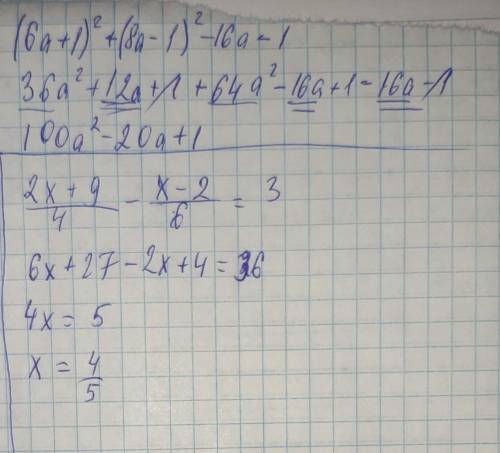 (6a+1)² + (8a-1)² - 16a - 1
36a² + 12a + 1 + 64a² - 16a + 1 - 16a - 1
100a² - 20a + 1
2x + 9 / 4 - x - 2 / 6 = 3
6x + 27 - 2x + 4 = 36
4x = 5
x = 4/5